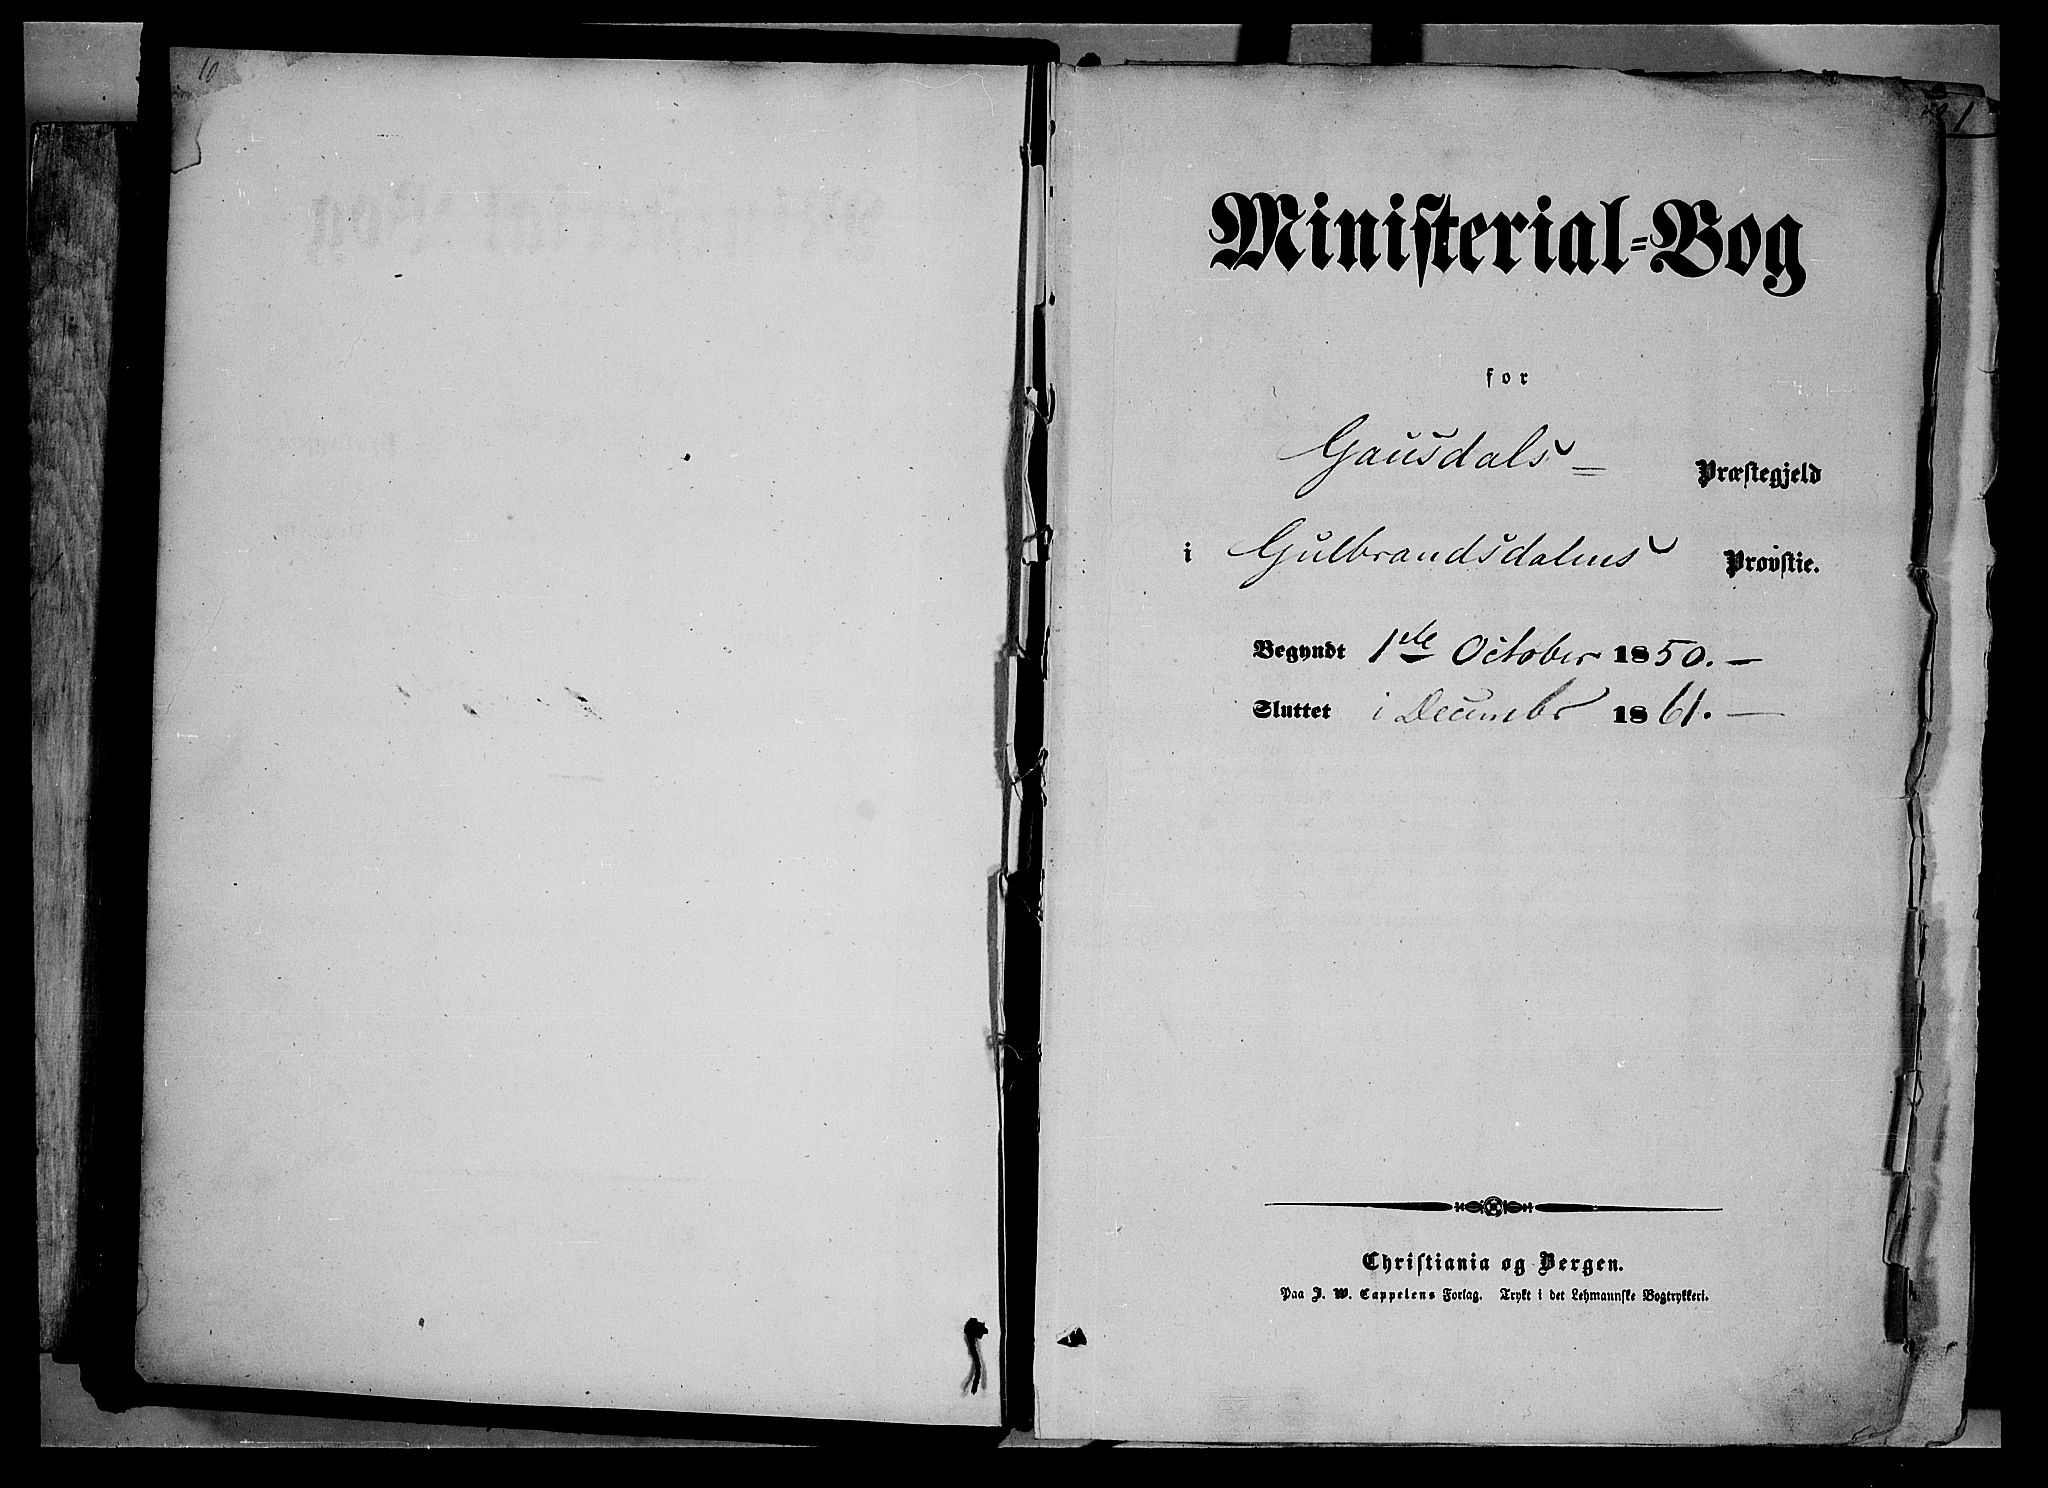 10
1
Ministerial-Bog
for
Gausdals= Præstegjeld
i Gulbrandsdalens Provstie.
Begyndt 1ste October 1850. —
Sluttet i Decembr 1861. —
Christiania og Bergen.
Paa J. W. Cappelens Forlag. Trykt i det Lehmannske Bogtrykkeri.